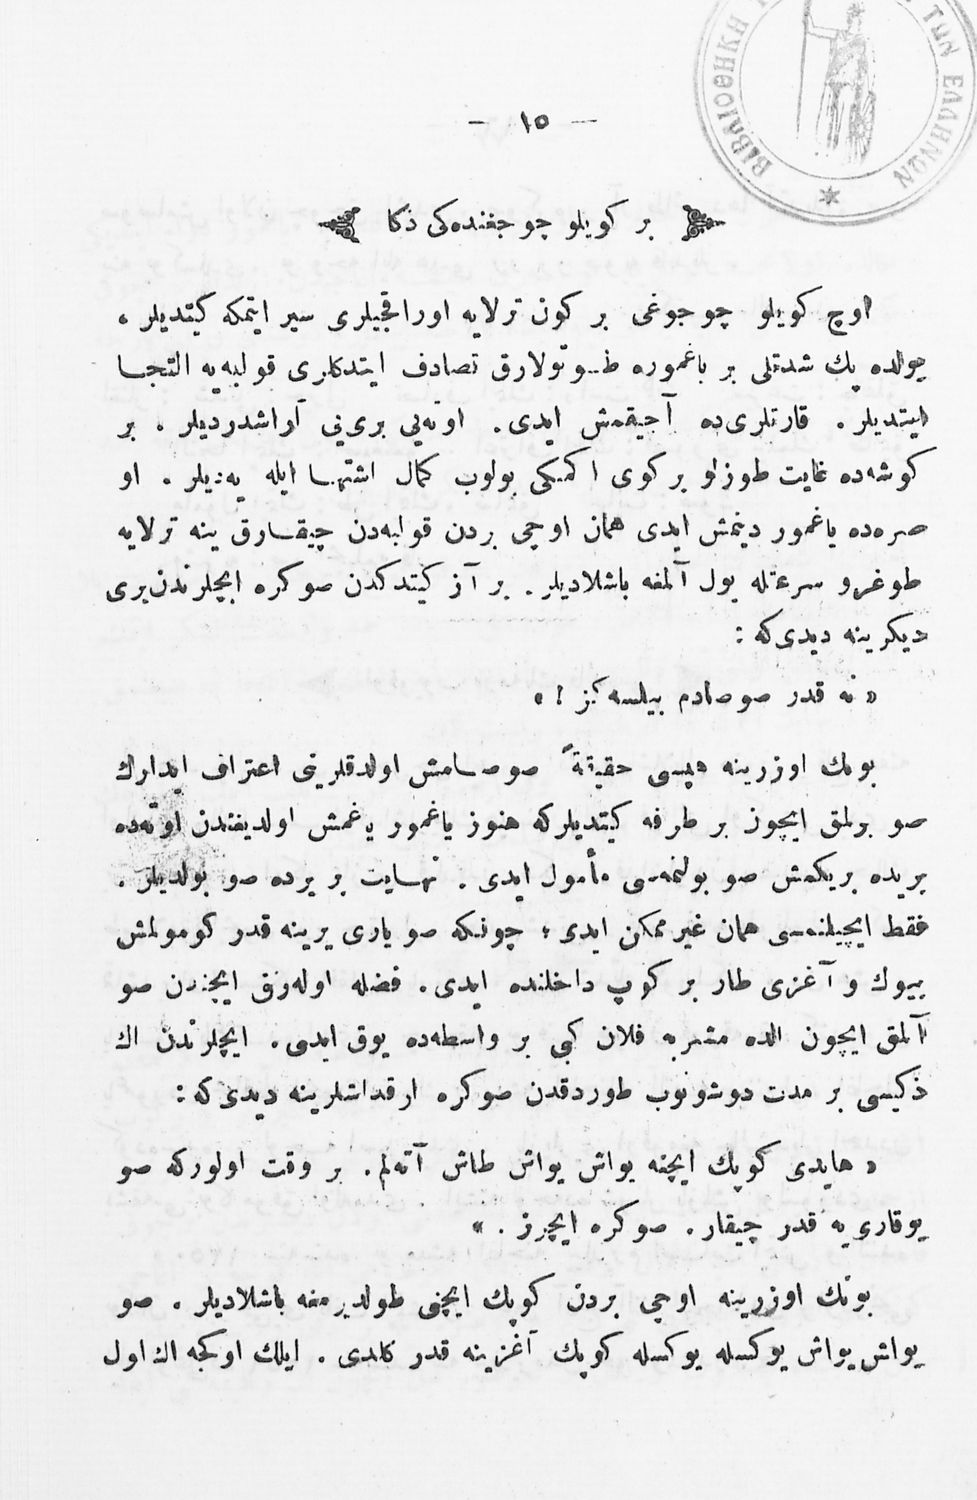 ΒΙΒΛΙΟΘΗΚΗ ΤΩΝ ΕΛΛΗΝΩΝ
— ١٥ —
بر كویلو چوجغنده‌كی ذكا
اوچ كویلو چوجوغی بر كون ترلایه اوراقجیلری سیر ایتمكه كیتدیلر ،
یولده پك شدتلی بر یاغموره طوتولارق تصادف ایتدكلری قولبه‌یه التجا
ایتدیلر . قارنلری‌ده آجیقمش ایدی . اوته‌یی بری‌یی آراشدردیلر . بر
كوشه‌ده غایت طوزلو بر كوی اكمكی بولوب كمال اشتها ایله یه‌دیلر . او
صره‌ده یاغمور دینمش ایدی همان اوچی بردن قولبه‌دن چیقارق ینه ترلایه
طوغرو سرعتله یول آلمغه باشلادیلر . بر آز كیتدكدن صوكره ایچلرندن بری
دیكرینه دیدی‌كه :
« نه قدر صوصادم بیلسه‌كز ! »
بونك اوزرینه هپسی حقیقةً صوصامش اولدقلرینی اعتراف ایدارك
صو بولمق ایچون بر طرفه كیتدیلركه هنوز یاغمور یاغمش اولدیغندن اوته‌ده
بریده بریكمش صو بولنمه‌سی مأمول ایدی . نهایت بر یرده صو بولدیلر .
فقط ایچیلنمه‌سی همان غیر ممكن ایدی ؛ چونكه صو یاری یرینه قدر كومولمش
بیوك و آغزی طار بر كوپ داخلنده ایدی . فضله اوله‌رق ایچندن صو
آلمق ایچون الده مشربه فلان كبی بر واسطه‌ده یوق ایدی . ایچلرندن اك
ذكیسی بر مدت دوشونوب طوردقدن صوكره ارقداشلرینه دیدی‌كه :
« هایدی كوپك ایچنه یواش یواش طاش آته‌لم . بر وقت اولوركه صو
یوقاری‌یه قدر چیقار . صوكره ایچرز . »
بونك اوزرینه اوچی بردن كوپك ایچنی طولدیرمغه باشلادیلر . صو
یواش یواش یوكسله یوكسله كوپك آغزینه قدر كلدی . ایلك اوكجه اك اول